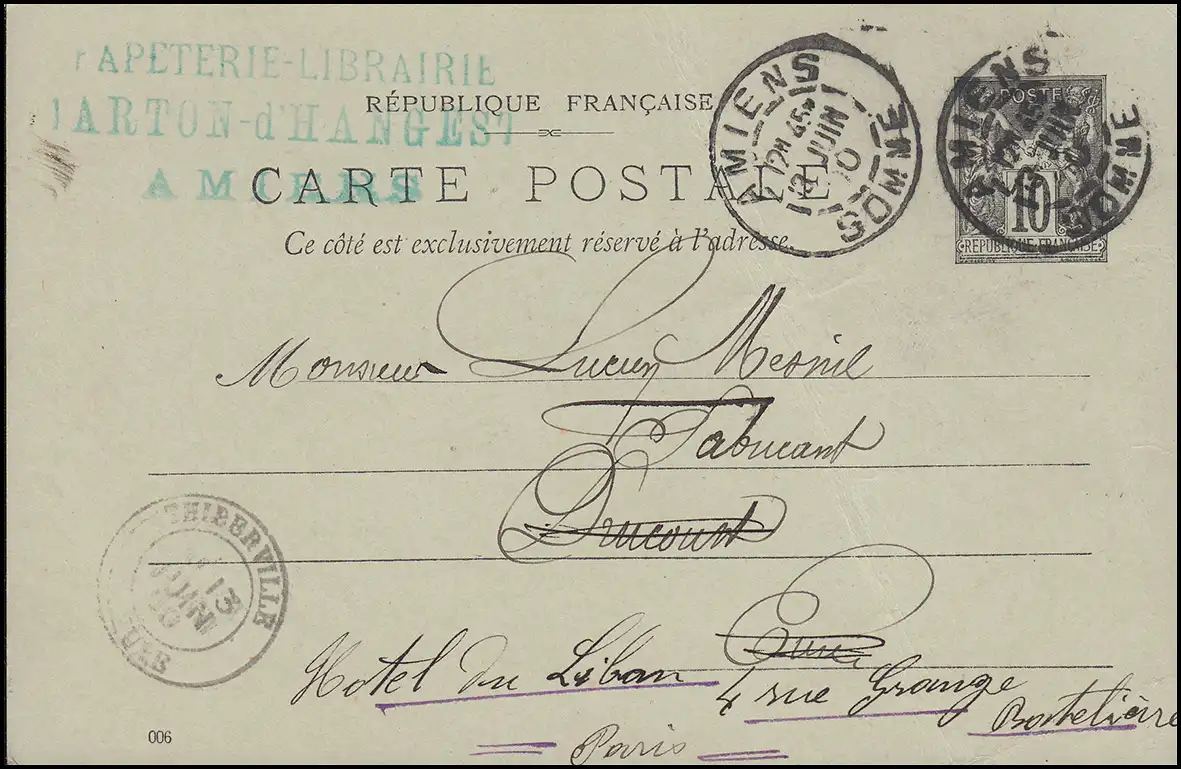 PAPETERIE-LIBRAIRIE
RÉPUBLIQUE FRANÇAISE
CARTON-d'HANGEST
AMIENS
CARTE POSTALE
Ce côté est exclusivement réservé à l'adresse.
AMIENS
12M 45
JUIN
SOMME
AMIENS
SOMME
POSTE
10
RÉPUBLIQUE FRANÇAISE
Monsieur Lucien Mesnil
Fabricant
Drucourt
THIBERVILLE
13
JUIN
EURE
Eure
Hotel du Liban 4 rue Grange
Batelière
Paris
006